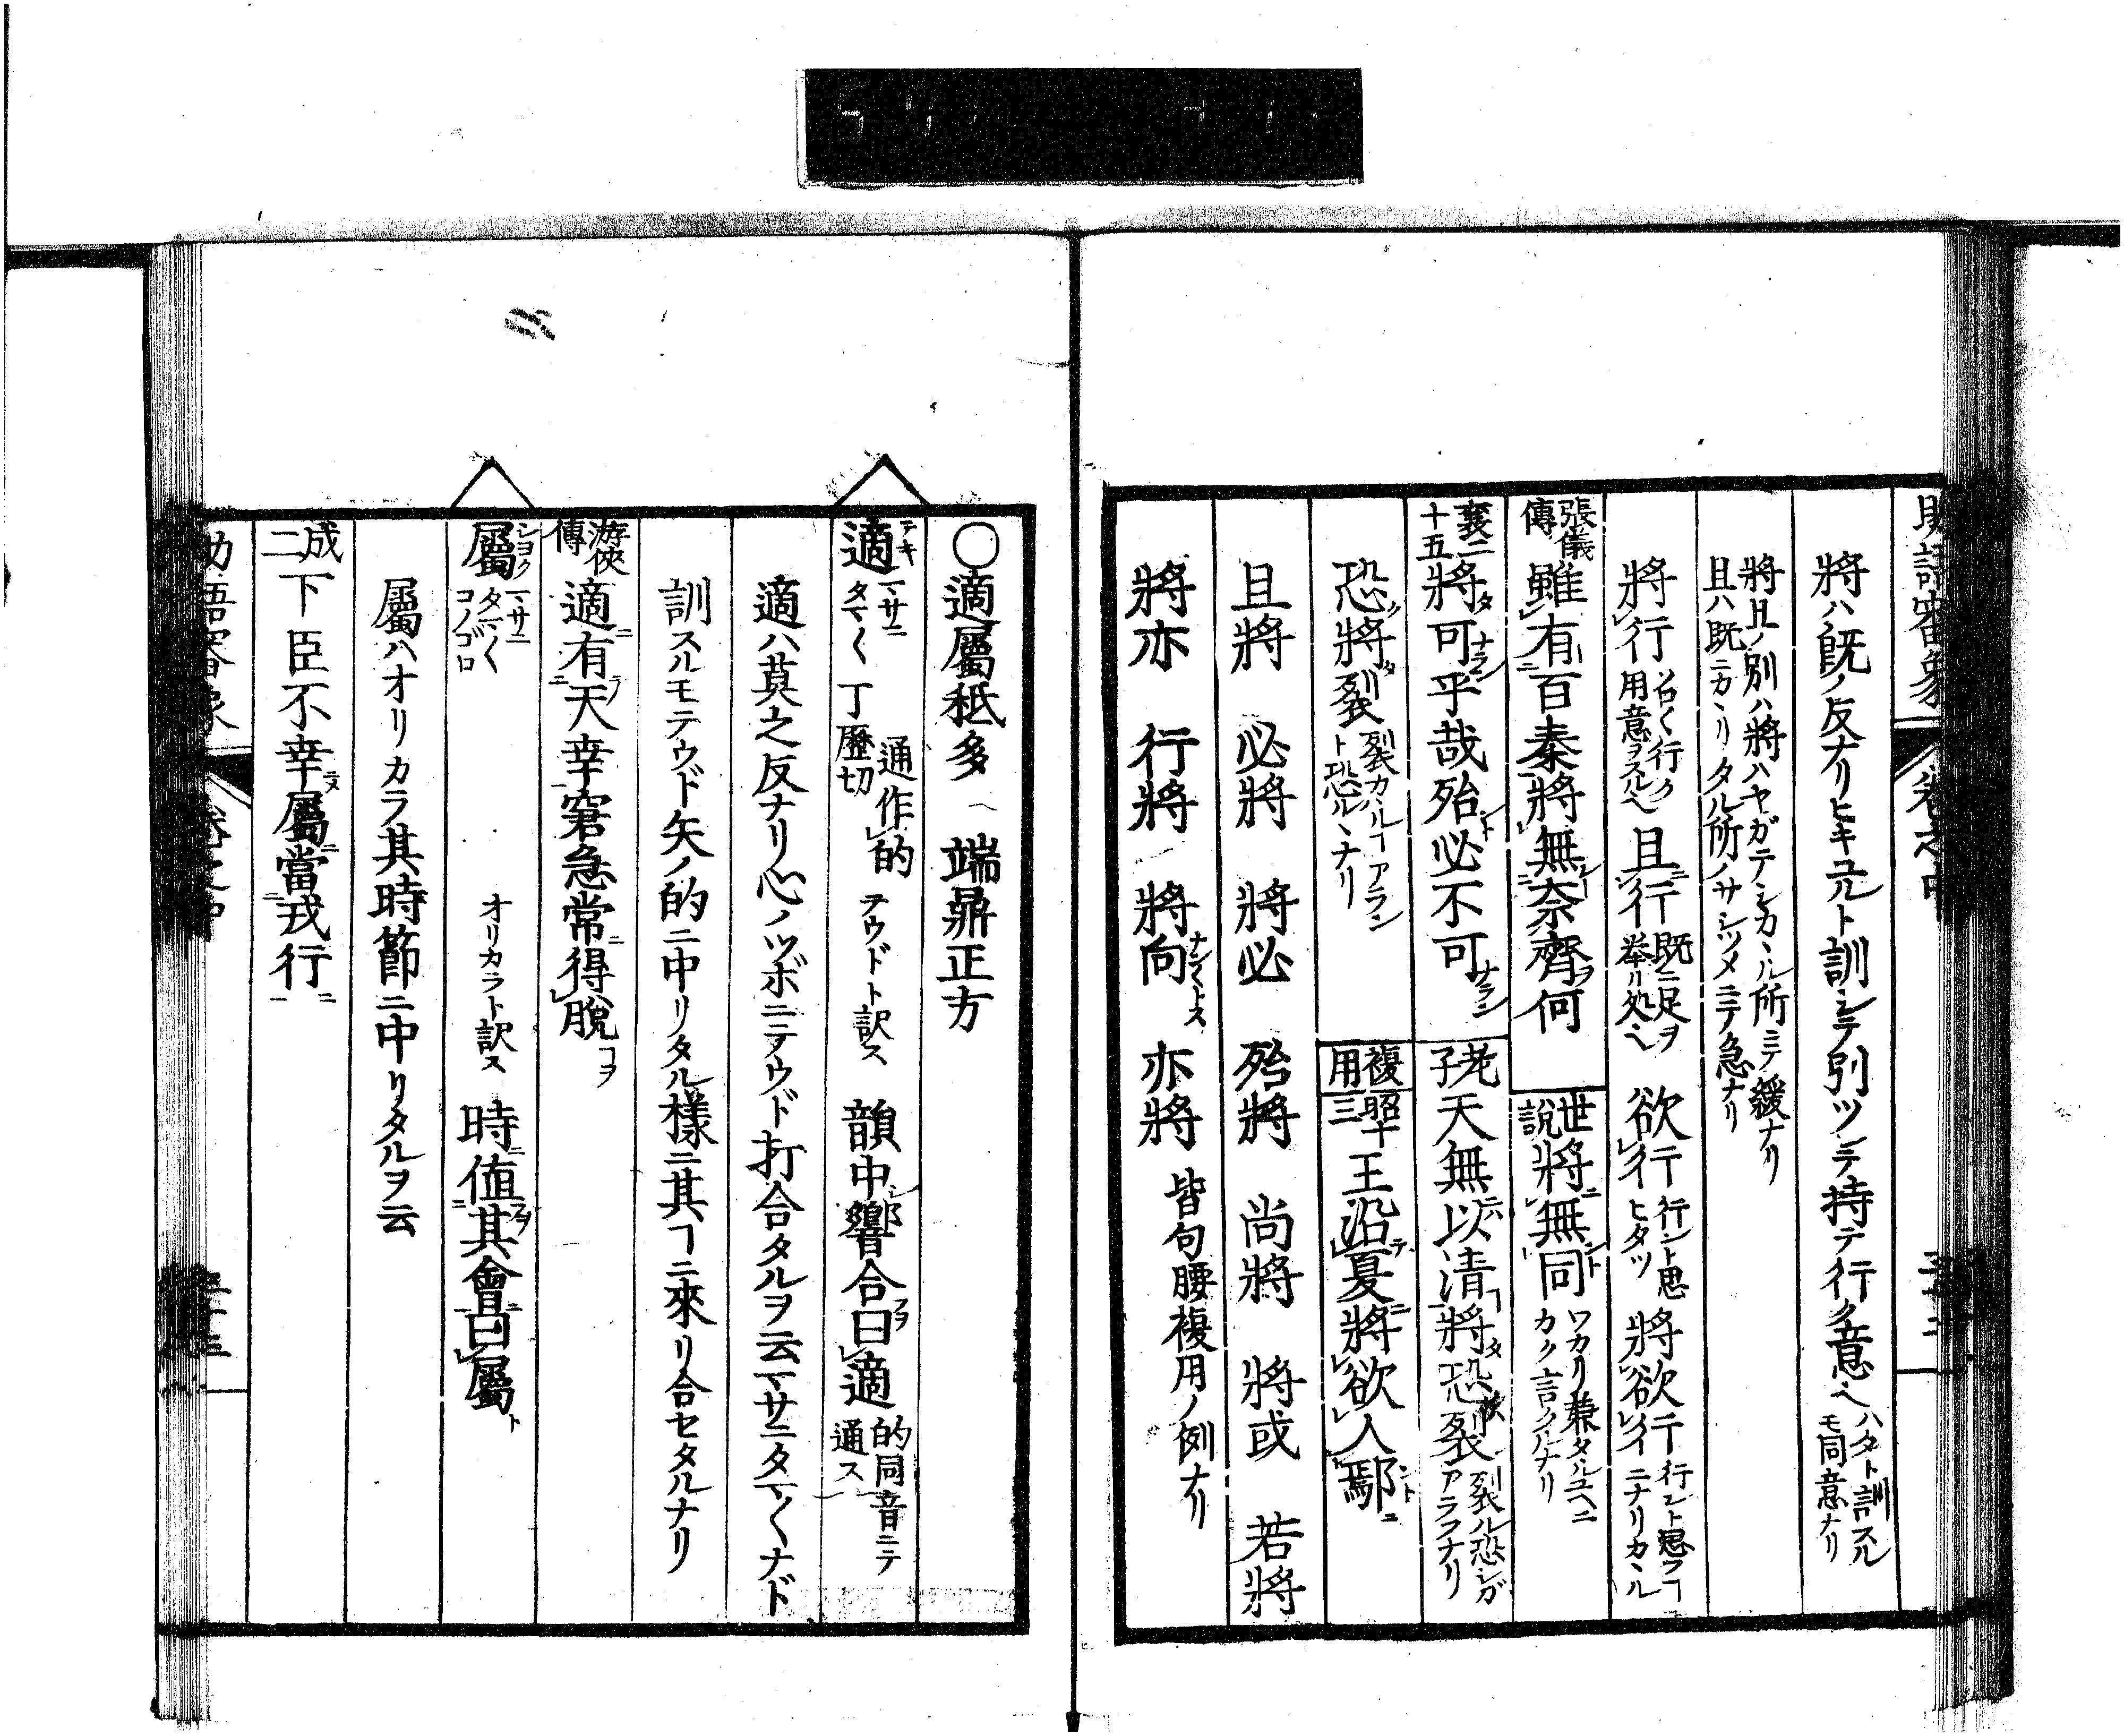 助語審象 卷之中
將ハ既ノ反ナリヒキユルト訓シテ引ツレテ持テ行ク意ヘ ハタト訓スルモ同意ナリ
將且ノ別ハ將ハヤガテシカヽル所ニテ緩ナリ
且ハ既ニカヽリタル所ノサシツメニテ急ナリ
將行 用意ヲスルヘ 且行 既ニ足ヲ挙ル処ヘ 欲行 行ント思ヒタツ 將欲行 行ント思フヿニナリカヽル
張儀傳 雖有百秦將無奈齊何 世說 將無同 カク言タルナリ
襄二十五 將可乎哉殆必不可 老子 天無以清將恐裂 裂ル恐レガアラフナリ
恐將裂 裂カヽルヿアラント恐ルヽナリ 複用 昭十三 王沿夏將欲入鄢
且將 必將 將必 殆將 尚將 將或 若將
將亦 行將 將向 亦將 皆句腰複用ノ例ナリ
〇適屬秖多 端鼎正方
適 テキ マサニ タマ〱 丁歷切 通作的 ヲウドト訳ス 韻中響合曰適 的同音ニテ通ス
適ハ莫之反ナリ心ノツボニテウド打合タルヲ云マサニタマ〱ナド
訓スルモテウド矢ノ的ニ中リタル樣ニ其ヿニ來リ合セタルナリ
游俠傳 適有天幸窘急常得脫
屬 シヨク マサニ タマ〱 コノゴロ オリカラト訳ス 時値其會曰屬
屬ハオリカラ其時節ニ中リタルヲ云
成二 下臣不幸屬當戎行
助語審象 卷之中